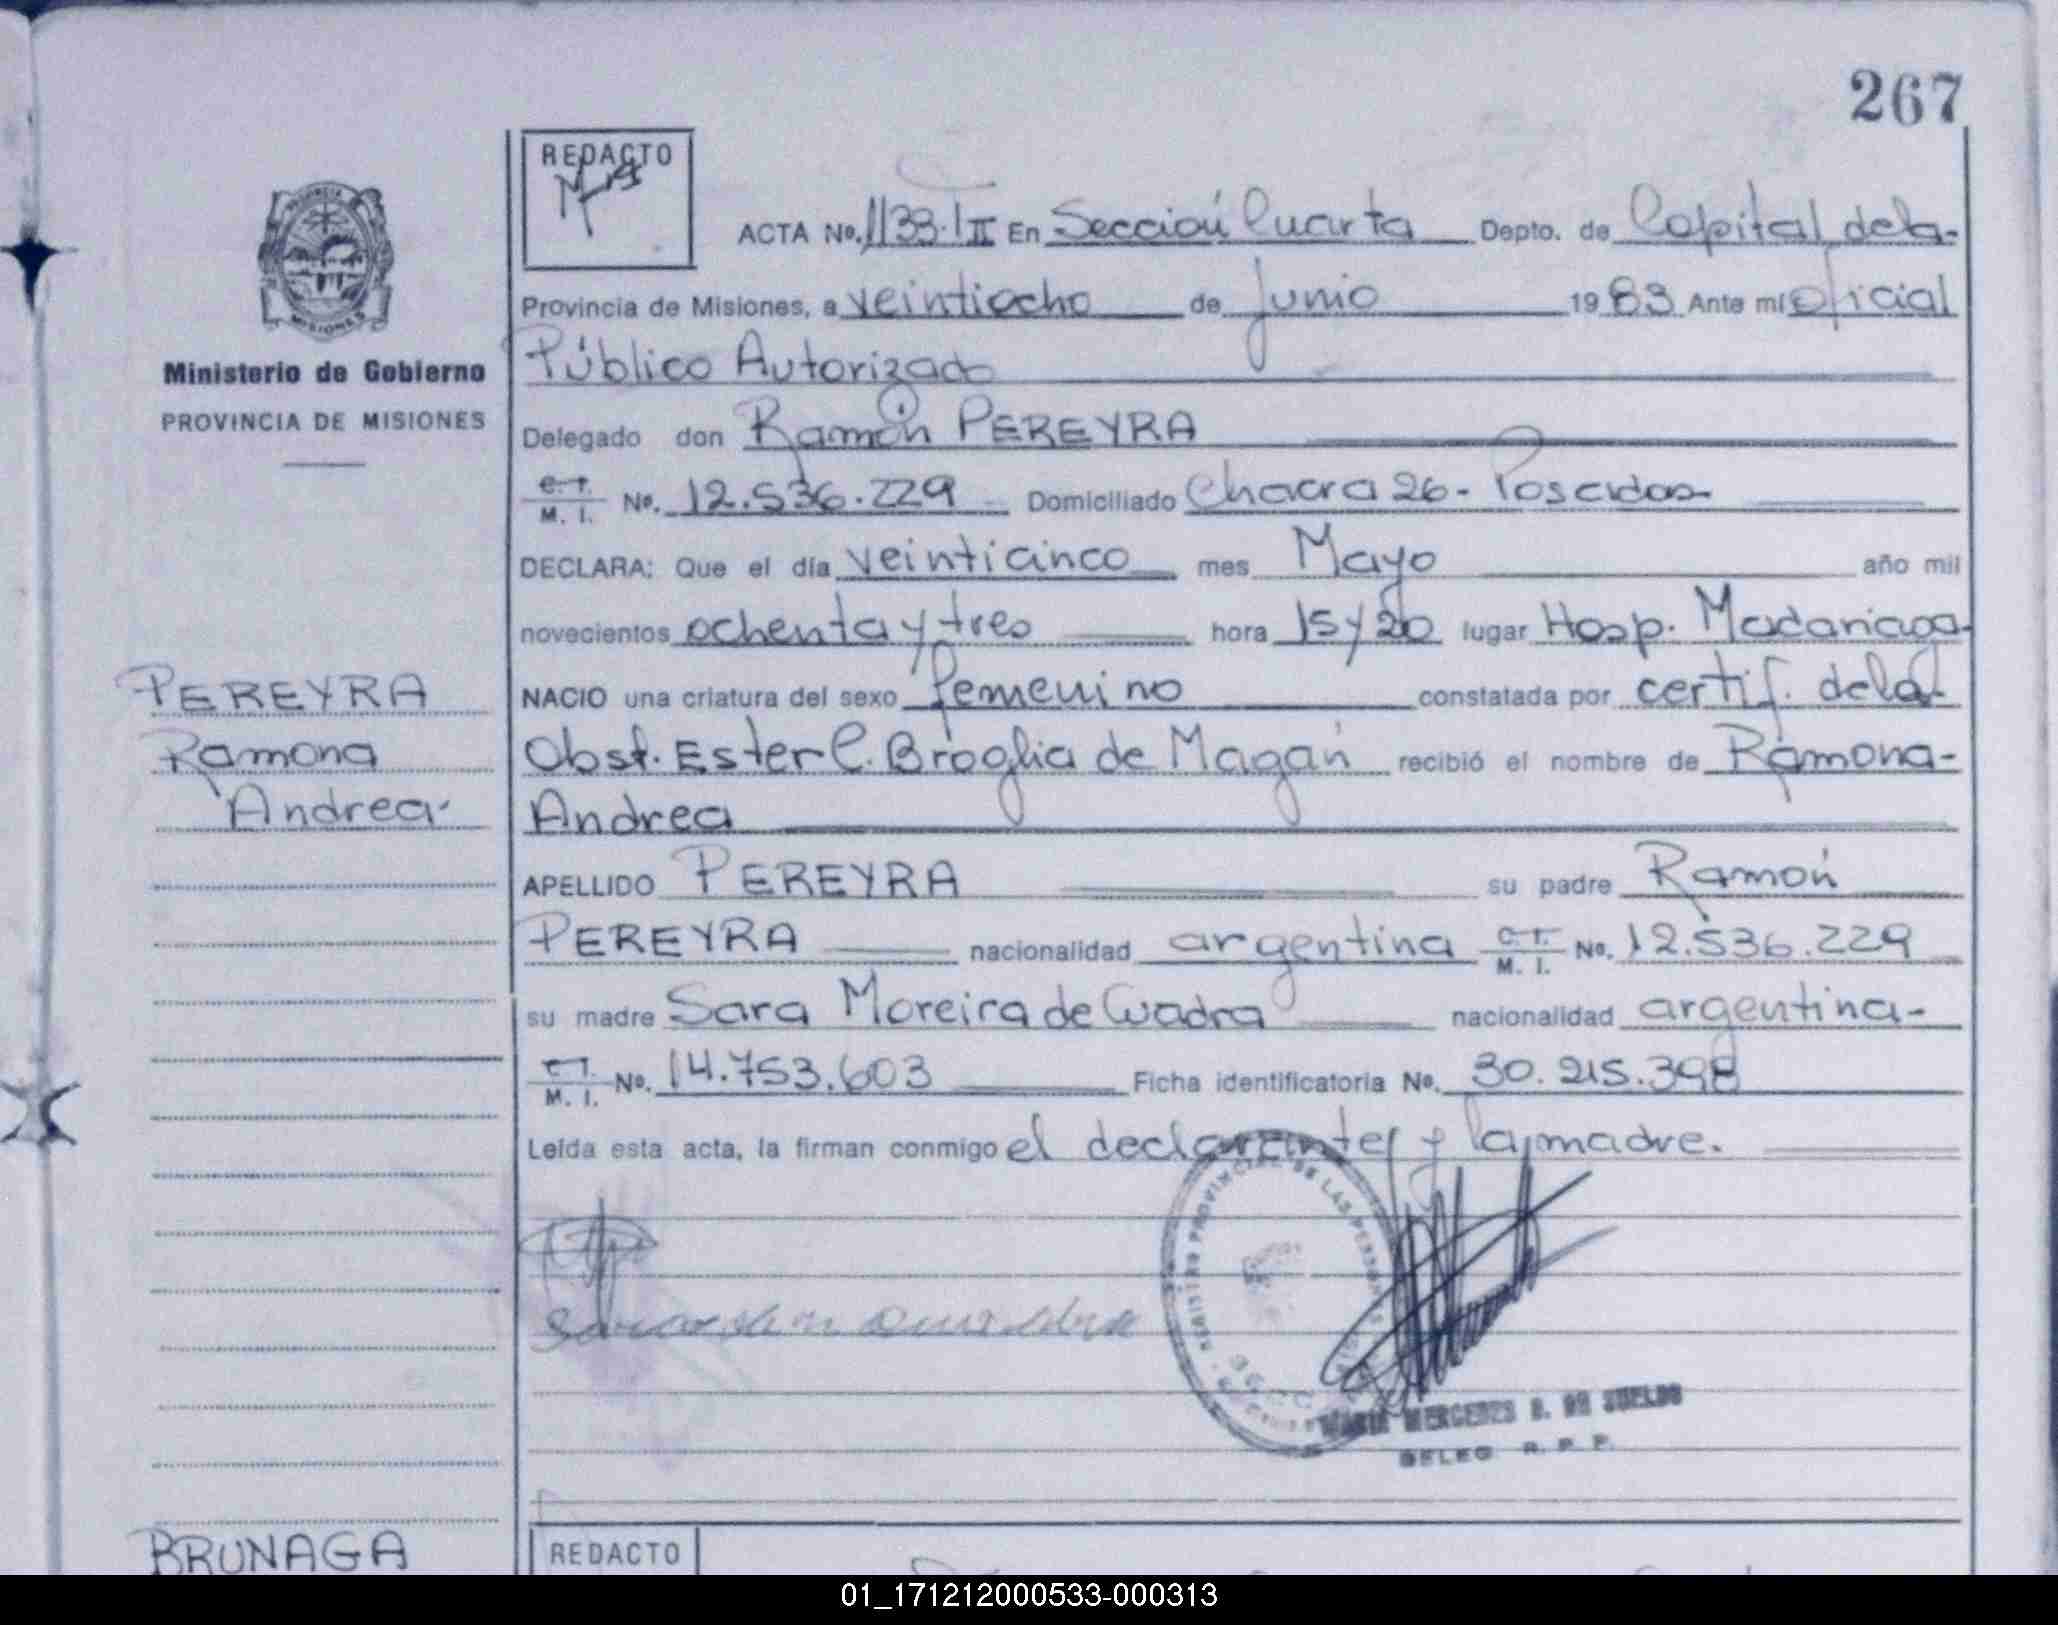 267
REDACTO
ACTA Nº. 1133. T II En Sección Cuarta Depto. de Capital de la
Provincia de Misiones, a veintiocho de Junio 1983 Ante mí Oficial
Público Autorizado
Ministerio de Gobierno
PROVINCIA DE MISIONES
Delegado don Ramón PEREYRA
M. I. Nº. 12.536.229 Domiciliado Chacra 26 - Posadas
DECLARA: Que el día veinticinco mes Mayo año mil
novecientos ochenta y tres hora 15 y 20 lugar Hosp. Madariaga
PEREYRA
Ramona
Andrea
NACIO una criatura del sexo femenino constatada por certif. de la
Obst. Ester C. Broglia de Magán recibió el nombre de Ramona
Andrea
APELLIDO PEREYRA su padre Ramón
PEREYRA nacionalidad argentina M. I. Nº. 12.536.229
su madre Sara Moreira de Cuadra nacionalidad argentina
M. I. Nº. 14.753.603 Ficha identificatoria Nº. 30.215.398
Leída esta acta, la firman conmigo el declarante y la madre.
REGISTRO PROVINCIAL DE LAS PERSONAS
MARIA MERCEDES B. DE SUELDO
DELEG. R. P. P.
BRUNAGA
REDACTO
01_171212000533-000313